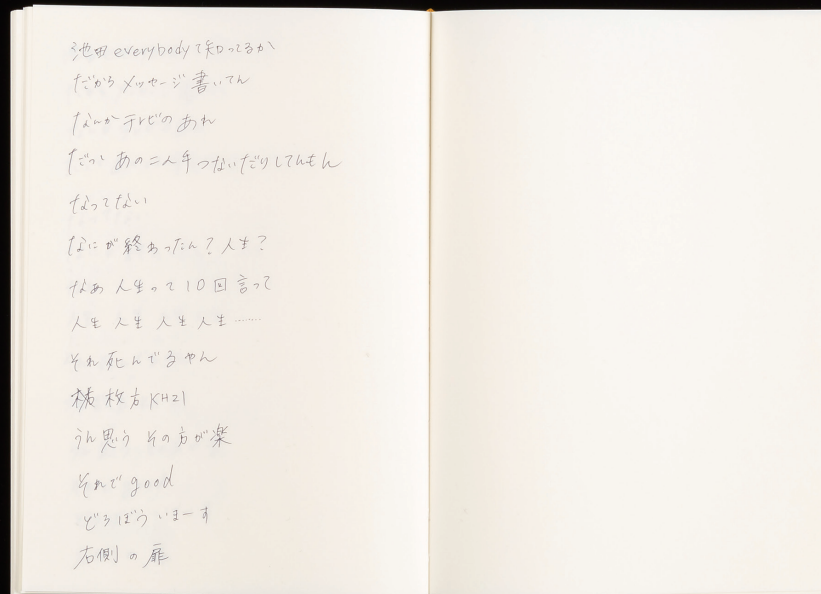 池田 everybodyて知ってるか
だから メッセージ 書いてん
なんか テレビの あれ
だって あの二人 手つないだりしてんもん
なってない
なにが 終わったん？ 人生？
なあ 人生って 10回 言って
人生 人生 人生 人生 ……
それ 死んでる やん
枚方 KH21
うん 思う その方が 楽
それで good
どろぼう いまーす
右側 の 扉